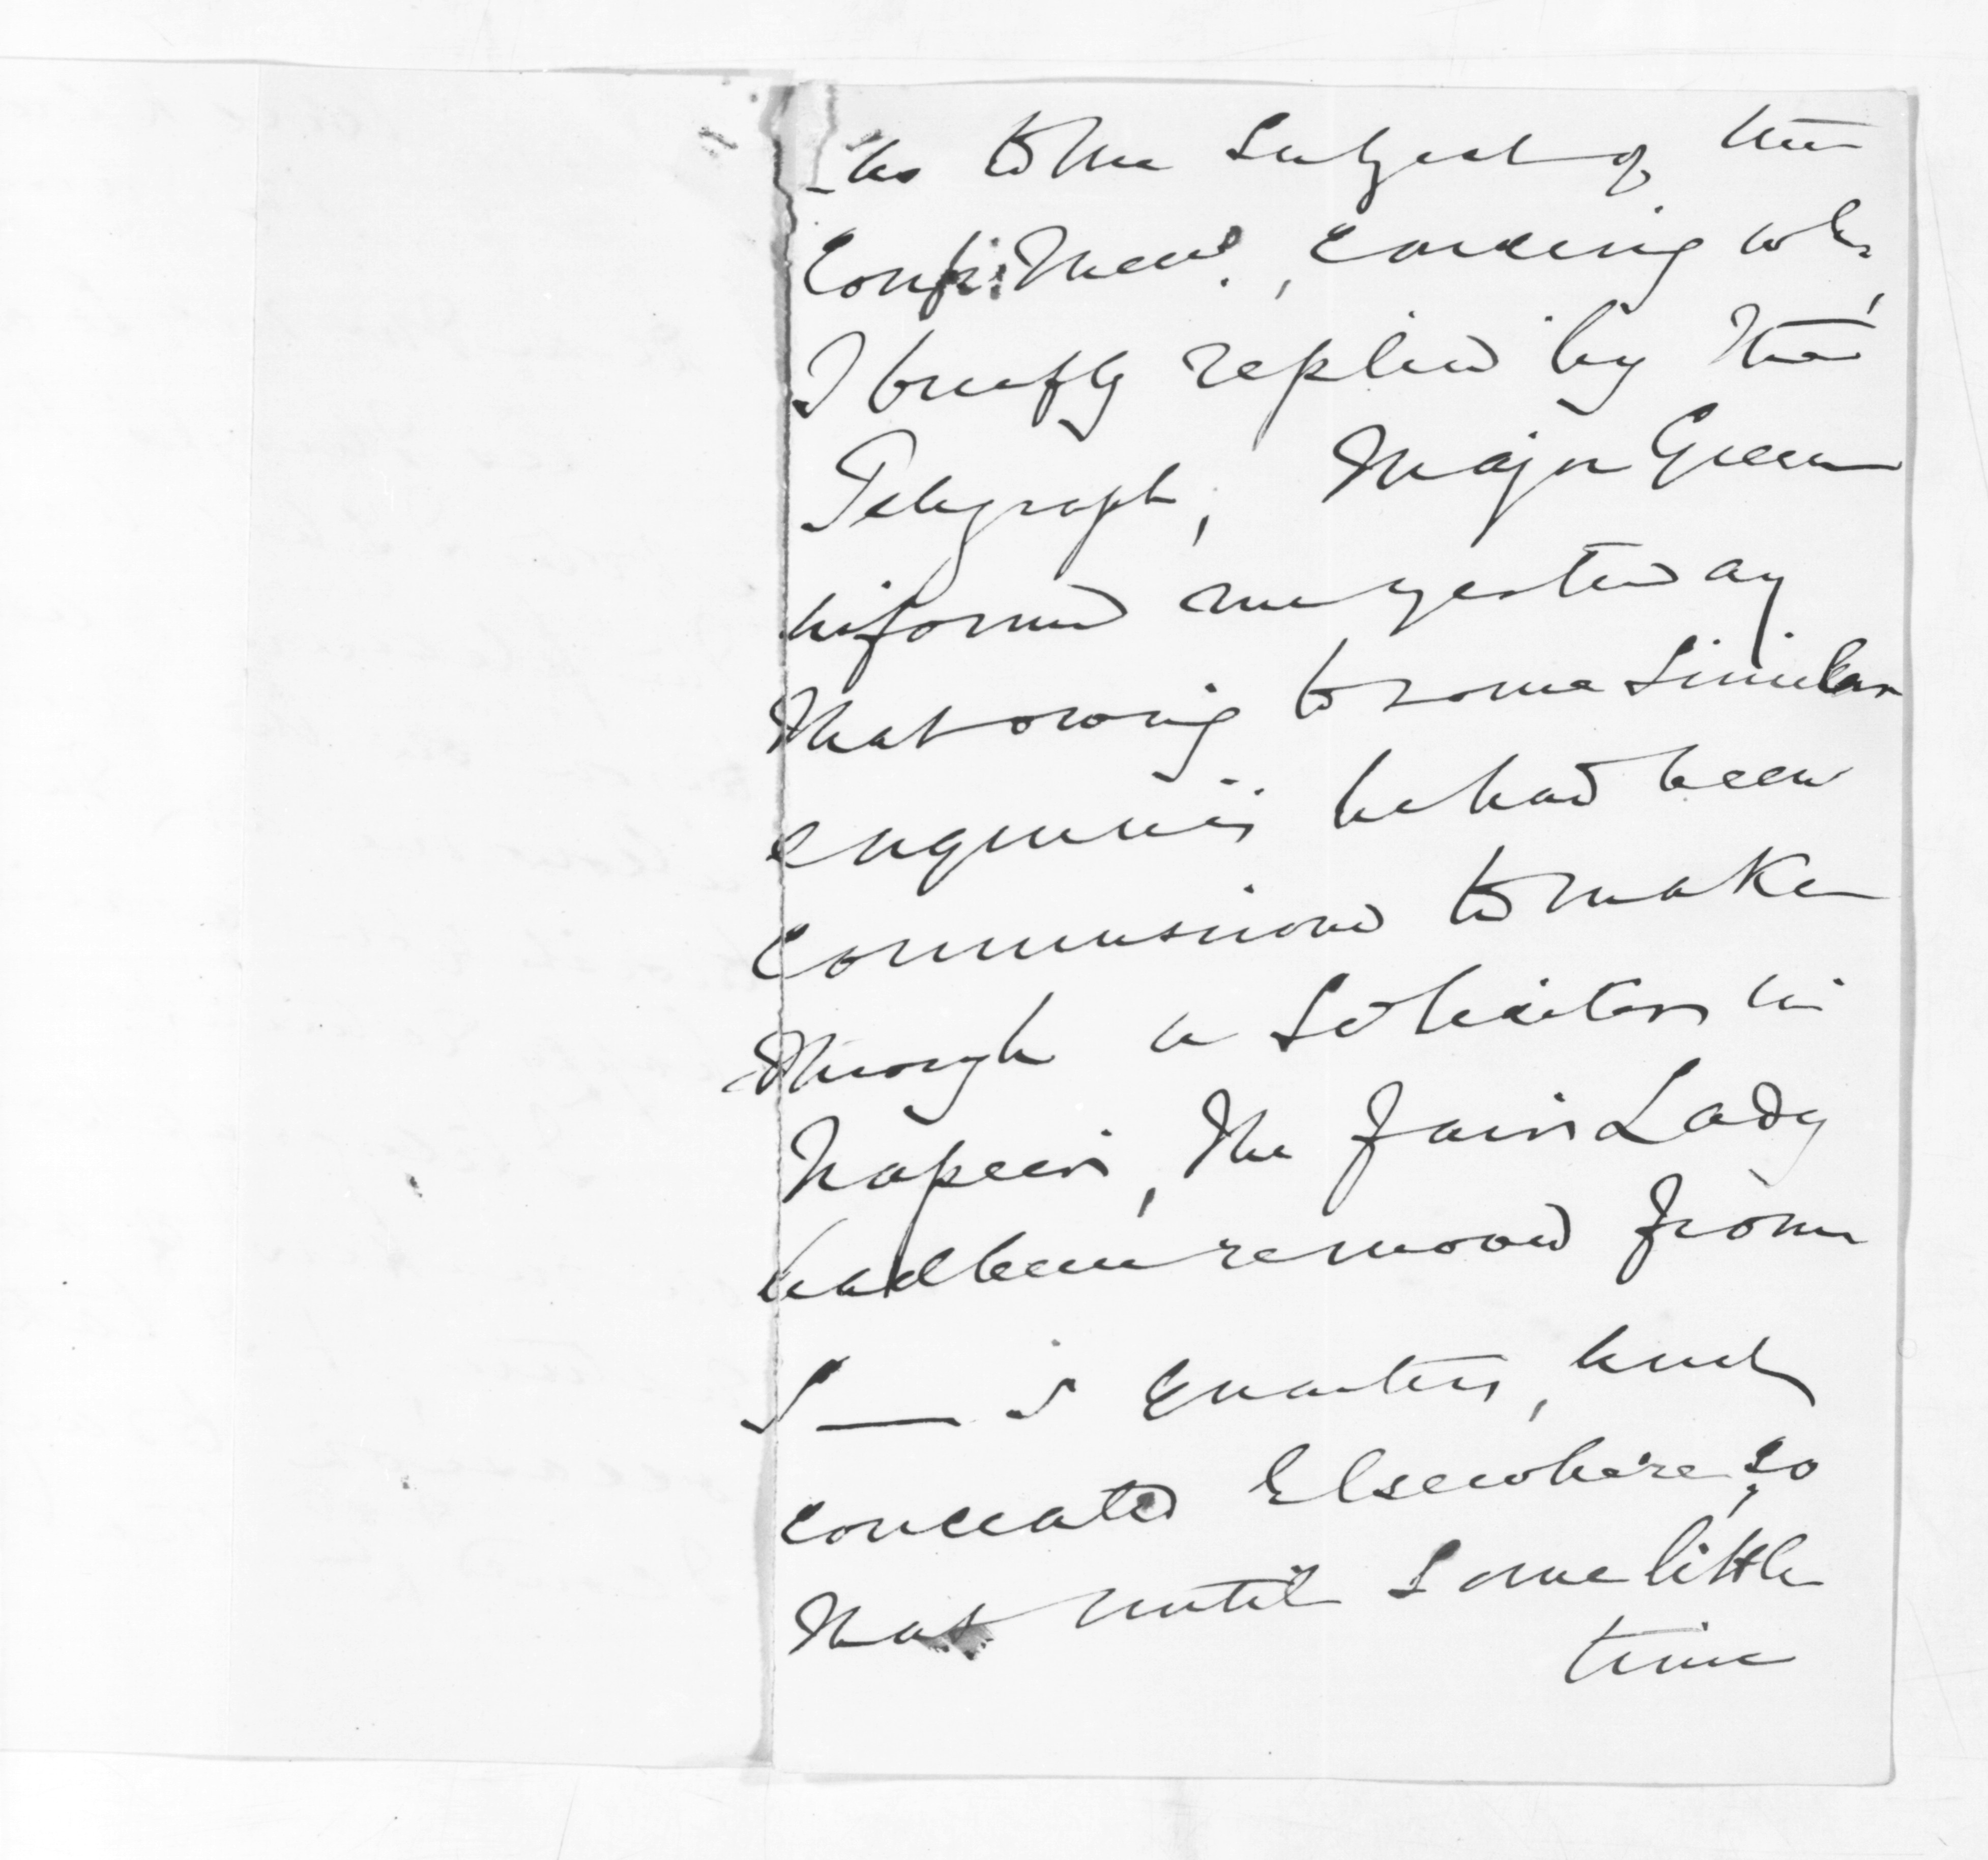 - as to the subject of the
I briefly replied by the
Telegraph, Major Green
informed me yesterday
that owing to some similar
enquiries he had been
commissioned to make
through a Solicitor in
Napier, the fair Lady
had been removed from
S—s quarters, and
concealed elsewhere, so
that until some little
time